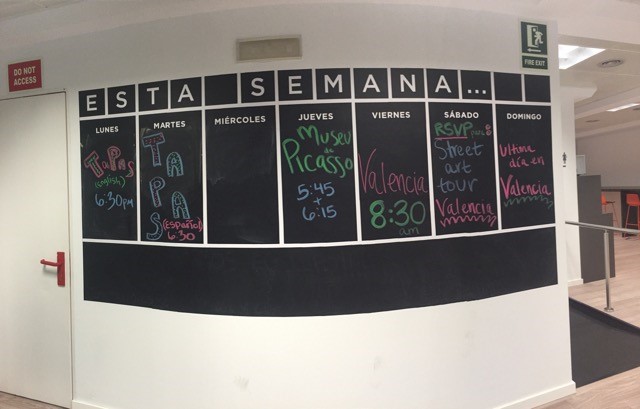 DO NOT
ACCESS
FIRE EXIT
ESTA SEMANA...
LUNES
Tapas
(english)
6:30pm
MARTES
TAPAS
(Español)
6:30
MIÉRCOLES
JUEVES
Museu
de
Picasso
5:45
+
6:15
VIERNES
Valencia
8:30
am
SÁBADO
RSVP para
Street
art
tour
Valencia
DOMINGO
Ultima
día en
Valencia